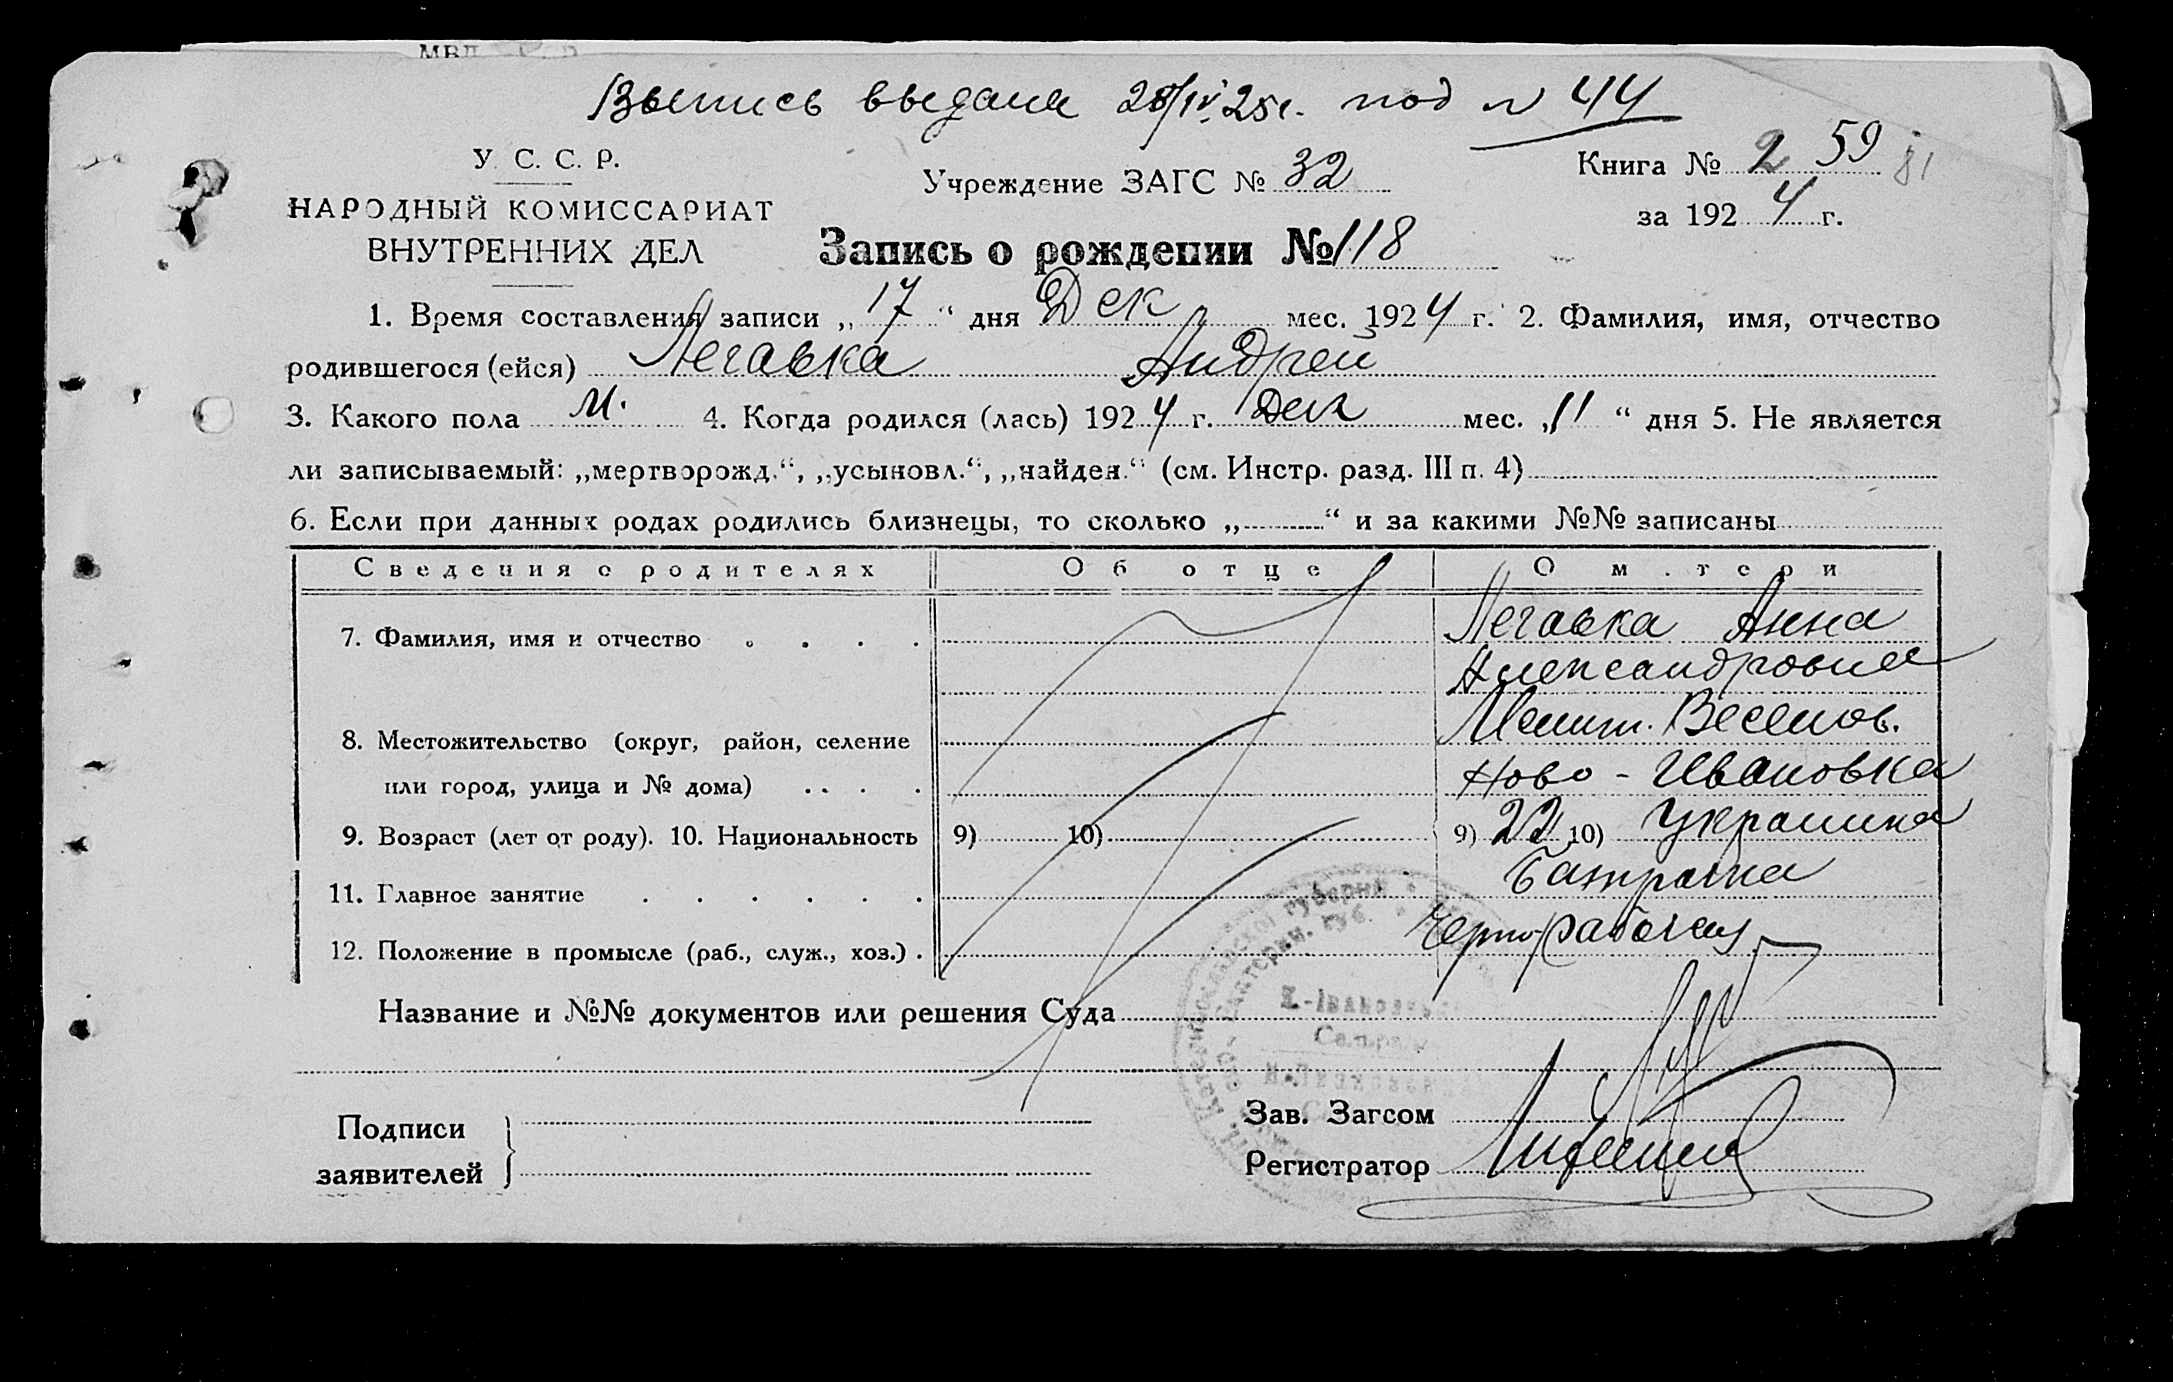 Выпись выдана 28/IV 25 г. под № 44
У. С. С. Р.
НАРОДНЫЙ КОМИССАРИАТ
ВНУТРЕННИХ ДЕЛ
Учреждение ЗАГС № 32
Книга № 2 59 81
за 1924 г.
Запись о рождении № 118
1. Время составления записи „17“ дня Дек мес. 1924 г. 2. Фамилия, имя, отчество
родившегося (ейся) Легавка Андрей
3. Какого пола М. 4. Когда родился (лась) 1924 г. Дек мес. „11“ дня 5. Не является
ли записываемый: „мертворожд.“, „усыновл.“, „найден.“ (см. Инстр. разд. III п. 4)
6. Если при данных родах родились близнецы, то сколько „ “ и за какими №№ записаны
Сведения о родителях Об отце О матери
7. Фамилия, имя и отчество . . . . Легавка Анна
Александровна
8. Местожительство (округ, район, селение Мелит. Веселов.
или город, улица и № дома) . . . . Ново-Ивановка
9. Возраст (лет от роду). 10. Национальность 9) 10) 9) 22 10) Украинка
11. Главное занятие . . . . . . Батрачка
12. Положение в промысле (раб., служ., хоз.) . Чернорабочая
Название и №№ документов или решения Суда
Подписи
заявителей
Зав. Загсом
Регистратор